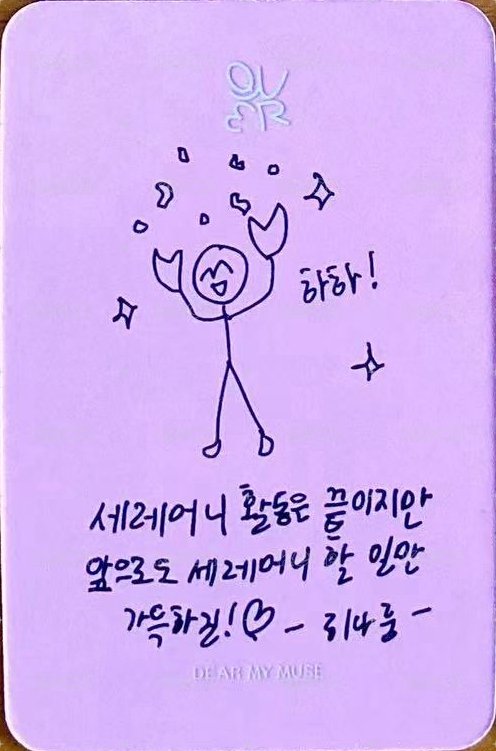 QV
ER
하하!
세레머니 활동은 끝이지만
앞으로도 세레머니 할 일만
가득하길!♡ - 리나쿵 -
DEAR MY MUSE